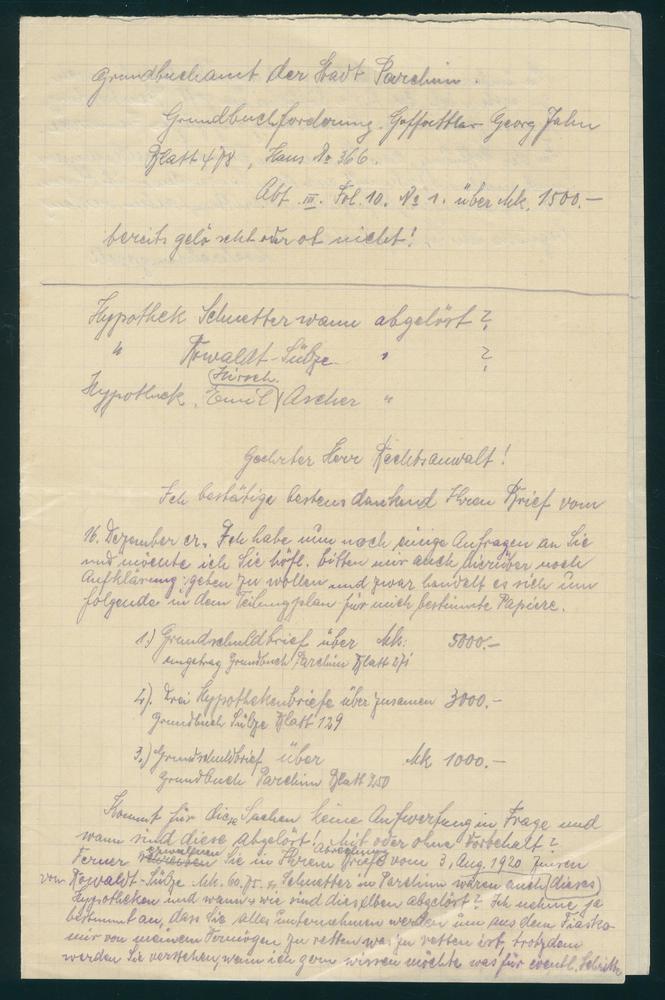 Grundbuchamt der Stadt Parchim.
Grundbuchforderung. Georg Jahn
Blatt 478, Haus No 366.
Abt. III. Fol. 10. No 1. über Mk. 1500.-
bereits gelöscht oder ob nicht!
Hypothek Schuetter wann abgelöst?
" Towaldt-Sülze " ?
Hirsch
Hypotheck. Emil Ascher "
Geehrter Herr Rechtsanwalt!
Ich bestätige bestens dankend Ihren Brief vom
16. Dezember cr. Ich habe nun noch einige Anfragen an Sie
und möchte ich Sie höfl. bitten mir auch hierüber noch
Aufklärung geben zu wollen und zwar handelt es sich um
folgende in dem Teilungsplan für mich bestimmte Papiere.
1.) Grundschuldbrief über Mk. 5000.-
Grundbuch Parchim Blatt 271
2). Drei Hypothekenbriefe über zusamen 3000.-
Grundbuch Sülze Blatt 129
3.) Grundschuldbrief über Mk 1000.-
Grundbuch Parchim Blatt 250
Kommt für diese Sachen keine Aufwertung in Frage und
wann sind diese abgelöst! Mit oder ohne Vorbehalt?
erwähnen
Ferner Sie in Ihrem Brief vom 3. Aug. 1920 Zinsen
von Towaldt-Sülze Mk. 60.75. u. Schuetter in Parchim waren auch (dieses)
Hypotheken und wann & wie sind dieselben abgelöst? Ich nehme ja
bestimmt an, dass Sie alles unternehmen werden um aus dem Fiasko
mir von meinem Vermögen zu retten was zu retten ist, trotzdem
werden Sie verstehen, wenn ich gern wissen möchte was für eventl. Schritte